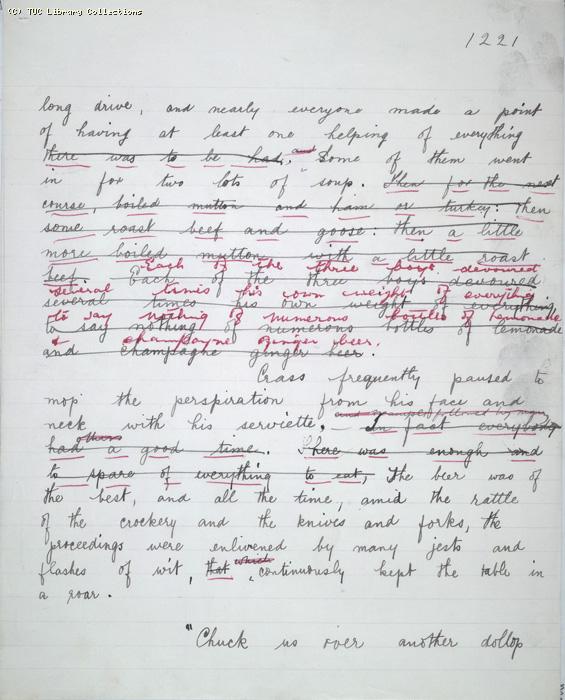 (C) TUC Library Collections
1221
long drive, and nearly everyone made a point
of having at least one helping of everything
there was to be had, and Some of them went
in for two lots of soup. Then for the next
course, boiled mutton and ham or turkey: then
some roast beef and goose: then a little
more boiled mutton with a little roast
Each of the three boys devoured
beef. Each of the three boys devoured
several times his own weight of everything
several times his own weight of everything,
to say nothing of numerous bottles of lemonade
to say nothing of numerous bottles of lemonade
& champagne ginger beer.
and champagne ginger beer.
Crass frequently paused to
mop the perspiration from his face and
neck with his serviette. In fact everybody
had a good time. There was enough and
others
to spare of everything to eat, The beer was of
the best, and all the time, amid the rattle
of the crockery and the knives and forks, the
proceedings were enlivened by many jests and
flashes of wit, that which continuously kept the table in
a roar.
"Chuck us over another dollop